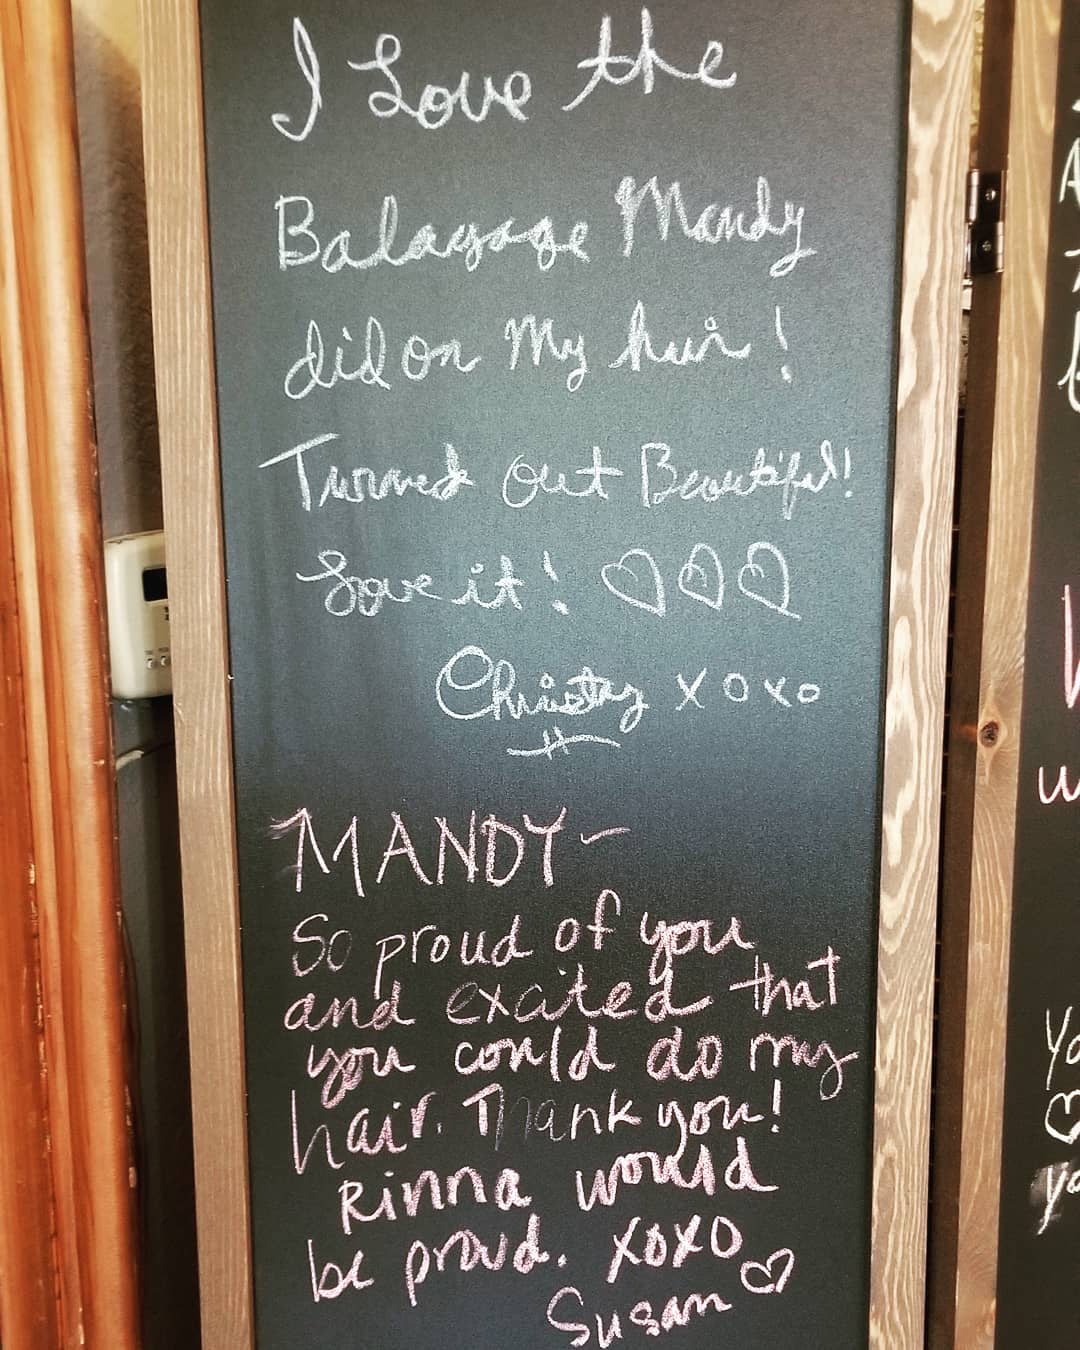 I Love the
Balayage Mandy
did on My hair!
Turned out Beautiful!
Love it! ♡♡♡
Christy xoxo
MANDY-
So proud of you
and excited that
you could do my
hair. Thank you!
Rinna would
be proud. xoxo
Susan ♡